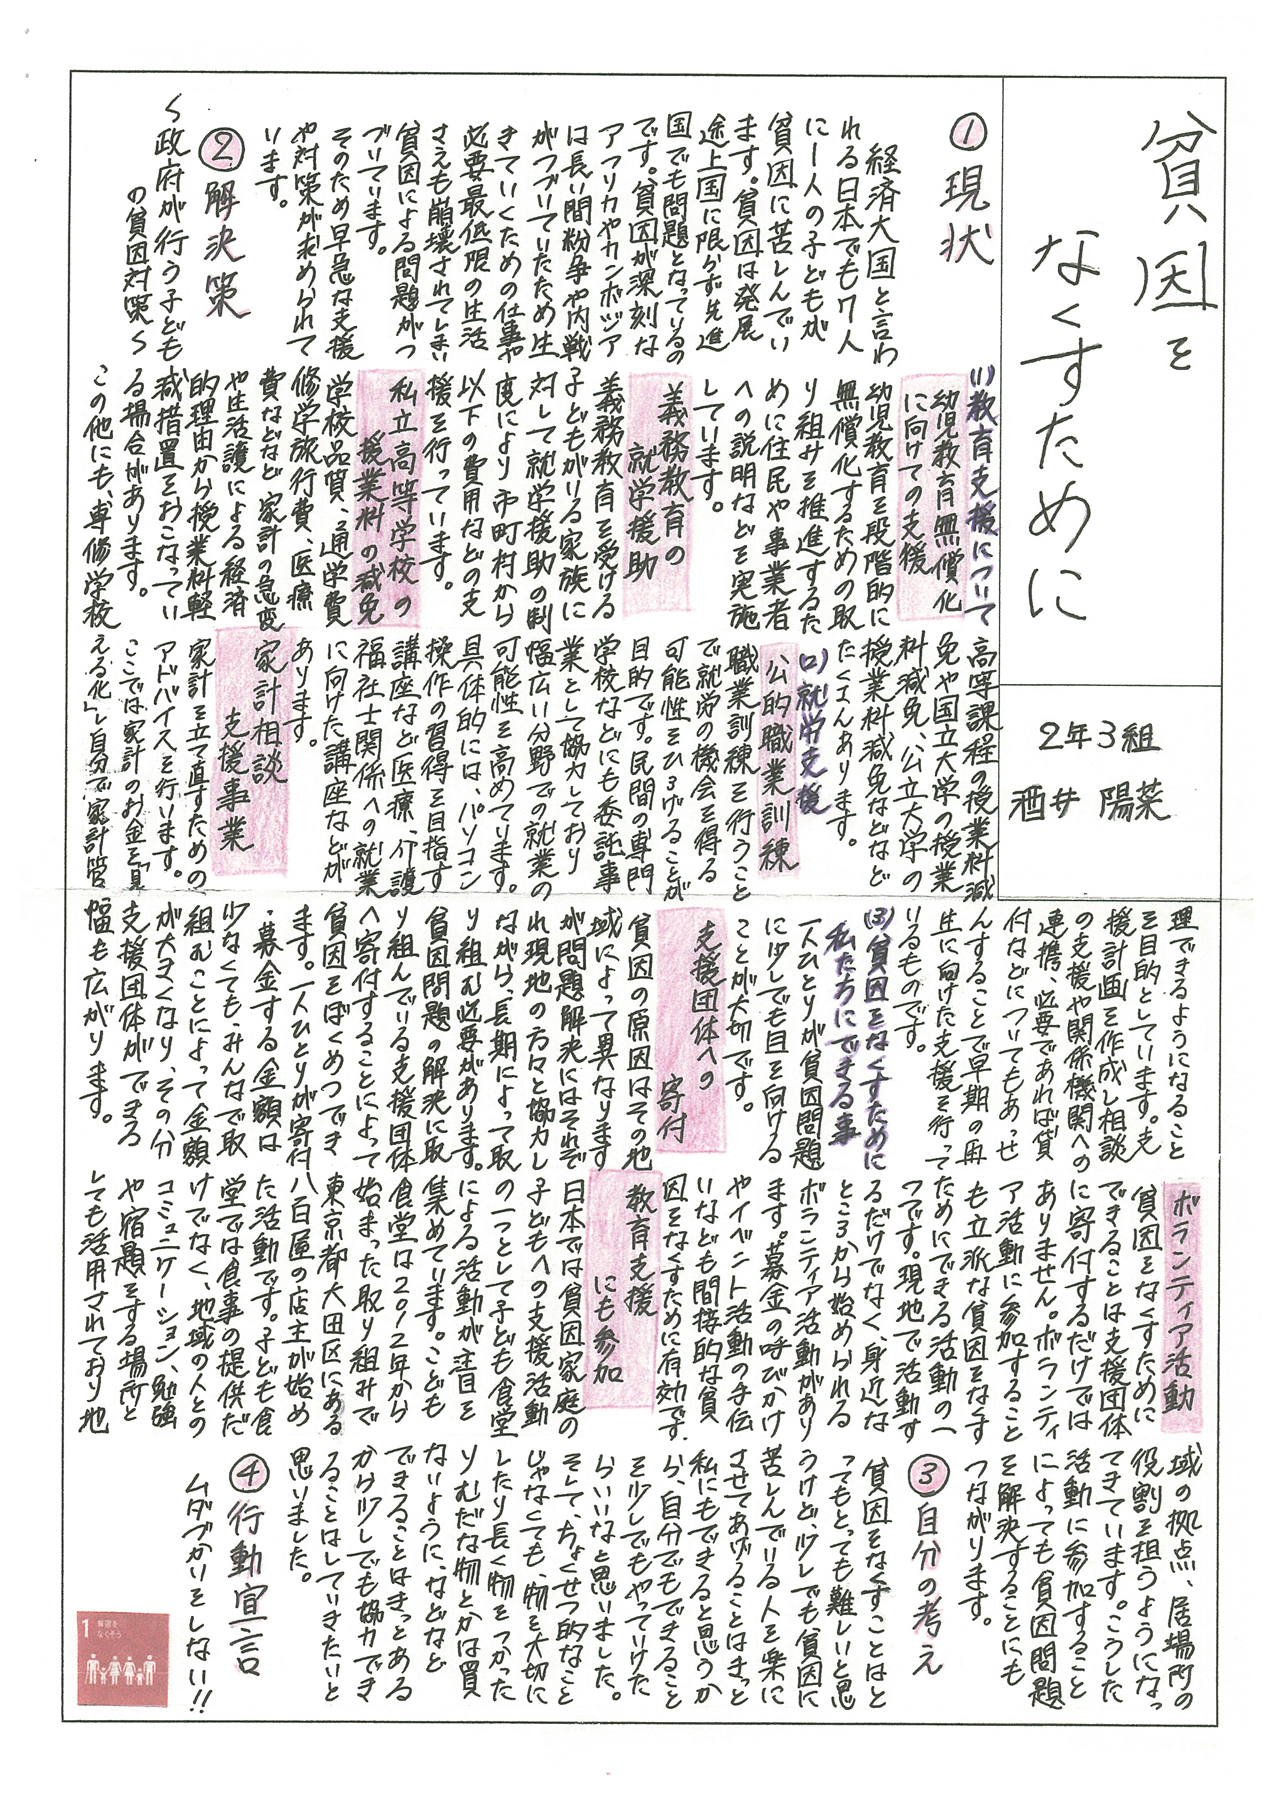 貧因を
なくすために
2年3組
酒井 陽菜
①現状
経済大国と言わ
れる日本でも7人
に1人の子どもが
貧因に苦しんでい
ます。貧因は発展
途上国に限らず先進
国でも問題となっているの
です。貧因が深刻な
アフリカやカンボジア
は長い間紛争や内戦
がつづいていたため生
きていくための仕事や
必要最低限の生活
さえも崩壊されてしまい
貧因による問題がつ
づいています。
そのため早急な支援
や対策が求められて
います。
②解決策
〜政府が行う子ども
の貧因対策〜
(1)教育支援について
幼児教育無償化
に向けての支援
幼児教育を段階的に
無償化するための取
り組みを推進するた
めに住民や事業者
への説明などを実施
しています。
義務教育の
就学援助
義務教育を受ける
子どもがいる家族に
対して就学援助の制
度により市町村から
以下の費用などの支
援を行っています。
私立高等学校の
授業料の減免
学校品質、通学費
修学旅行費、医療
費などなど家計の急変
や生活護による経済
的理由から授業料軽
減措置をおこなってい
る場合があります。
この他にも、専修学校
高等課程の授業料減
免や国立大学の授業
料減免、公立大学の
授業料減免などなど
たくさんあります。
(2)就労支援
公的職業訓練
職業訓練を行うこと
で就労の機会を得る
可能性をひろげることが
目的です。民間の専門
学校などにも委託事
業として協力しており
幅広い分野での就業の
可能性を高めています。
具体的には、パソコン
操作の習得を目指す
講座など医療、介護
福社士関係への就業
に向けた講座などが
あります。
家計相談
支援事業
家計を立て直すための
アドバイスを行います。
ここでは家計のお金を「見
える化」し自分で家計管
理できるようになること
を目的としています。支
援計画を作成し相談
の支援や関係機関への
連携、必要であれば貸
付などについてもあっせ
んすることで早期の再
生に向けた支援を行って
いるものです。
(3)貧因をなくすために
私たちにできる事
一人ひとりが貧因問題
に少しでも目を向ける
ことが大切です。
支援団体への
寄付
貧因の原因はその地
域によって異なります
が問題解決にはそれぞ
れ現地の方々と協力し
ながら、長期によって取
り組む必要があります。
貧因問題の解決に取
り組んでいる支援団体
へ寄付することによって
貧因をぼくめつでき
ます。一人ひとりが寄付
・募金する金額は
少なくても、みんなで取
組むことによって金額
が大きくなり、その分
支援団体ができる
幅も広がります。
ボランティア活動
貧因をなくすために
できることは支援団体
に寄付するだけでは
ありません。ボランティ
ア活動に参加すること
も立派な貧因をなす
ためにできる活動の一
つです。現地で活動す
るだけでなく、身近な
ところから始められる
ボランティア活動があり
ます。募金の呼びかけ
やイベント活動の手伝
いなども間接的な貧
因をなくすために有効です。
教育支援
にも参加
日本では貧因家庭の
子どもへの支援活動
の一つとして子ども食堂
による活動が注目を
集めています。こども
食堂は2012年から
始まった取り組みで
東京都大田区にある
八百屋の店主が始め
た活動です。子ども食
堂では食事の提供だ
けでなく、地域の人との
コミュニケーション、勉強
や宿題をする場所と
しても活用されており地
域の拠点、居場所の
役割を担うようになっ
てきています。こうした
活動に参加すること
によっても貧因問題
を解決することにも
つながります。
③自分の考え
貧因をなくすことはと
ってもとっても難しいと思
うけど、少しでも貧因に
苦しんでいる人を楽に
させてあげることはきっと
私にもできると思うか
ら、自分でもできること
を少しでもやっていけた
らいいなと思いました。
そして、ちょくせつ的なこと
じゃなくても、物を大切に
したり長く物をつかった
りむだな物とかは買
ないように、などなど
できることはきっとある
から少しでも協力でき
ることはしていきたいと
思いました。
④行動宣言
ムダづかいをしない!!
1 貧困を
なくそう